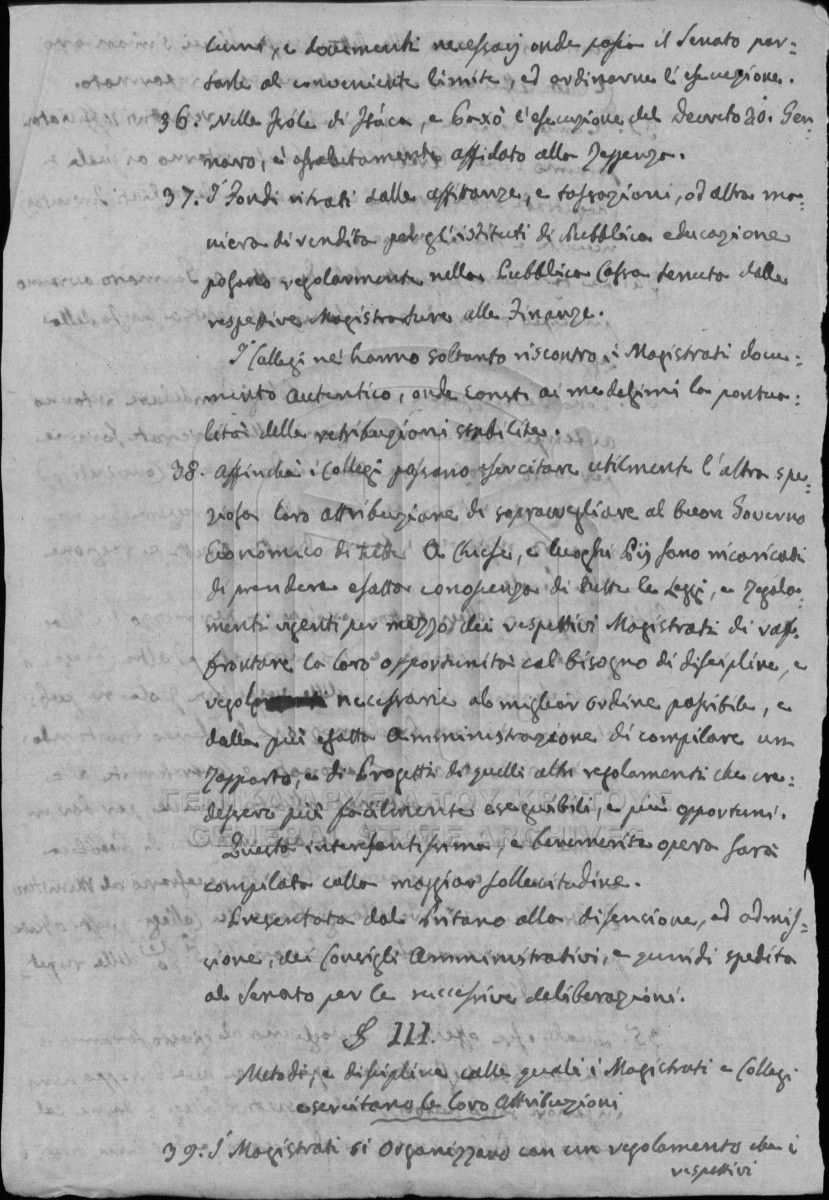 lumi, e documenti necessarj onde possa il Senato por=
tarle al conveniente limite, ed ordinarne l'esecuzione.
36. Nelle Isole di Itaca, e Paxò l'esecuzione del Decreto 20. Gen=
naro, è assolutamente affidato alla Reggenza.
37. I Fondi ritrati dalle affittanze, e tassazioni, od altra ma=
niera di vendita per gli istituti di Pubblica educazione
passano regolarmente nella Pubblica Cassa tenuta dalle
respettive Magistrature alle Finanze.
I Collegi ne hanno soltanto riscontro, i Magistrati docu=
mento autentico, onde consti ai medesimi la pontua=
lità delle retribuzioni stabilite.
38. Affinchè i Collegi possano esercitare utilmente l'altra spe=
ziosa loro attribuzione di sopravegliare al buon Governo
Economico di tutte le Chiese, e luoghi Pij sono incaricati
di prendere esatta conoscenza di tutte le Leggi, e Regola=
menti vigenti per mezzo dei respettivi Magistrati di raf=
frontare la loro opportunità col bisogno di discipline, e
regole necessarie al miglior ordine possibile, e
dalla più esatta Amministrazione di compilare un
Rapporto, e di Progetti di quelli altri regolamenti che cre=
dessero più facilmente eseguibili, e più opportuni.
Questa interessantissima, e benemerita opera sarà
compilata colla maggior sollecitudine.
Presentata dal Pritano alla discussione, ed admis=
sione, dei Consigli Amministrativi, e quindi spedita
al Senato per le successive deliberazioni.
§ III.
Metodi, e discipline colle quali i Magistrati e Collegi
esercitano le loro Attribuzioni
39. I Magistrati si Organizzano con un regolamento che i
respettivi
ΓΕΝΙΚΑ ΑΡΧΕΙΑ ΤΟΥ ΚΡΑΤΟΥΣ
GENERAL STATE ARCHIVES